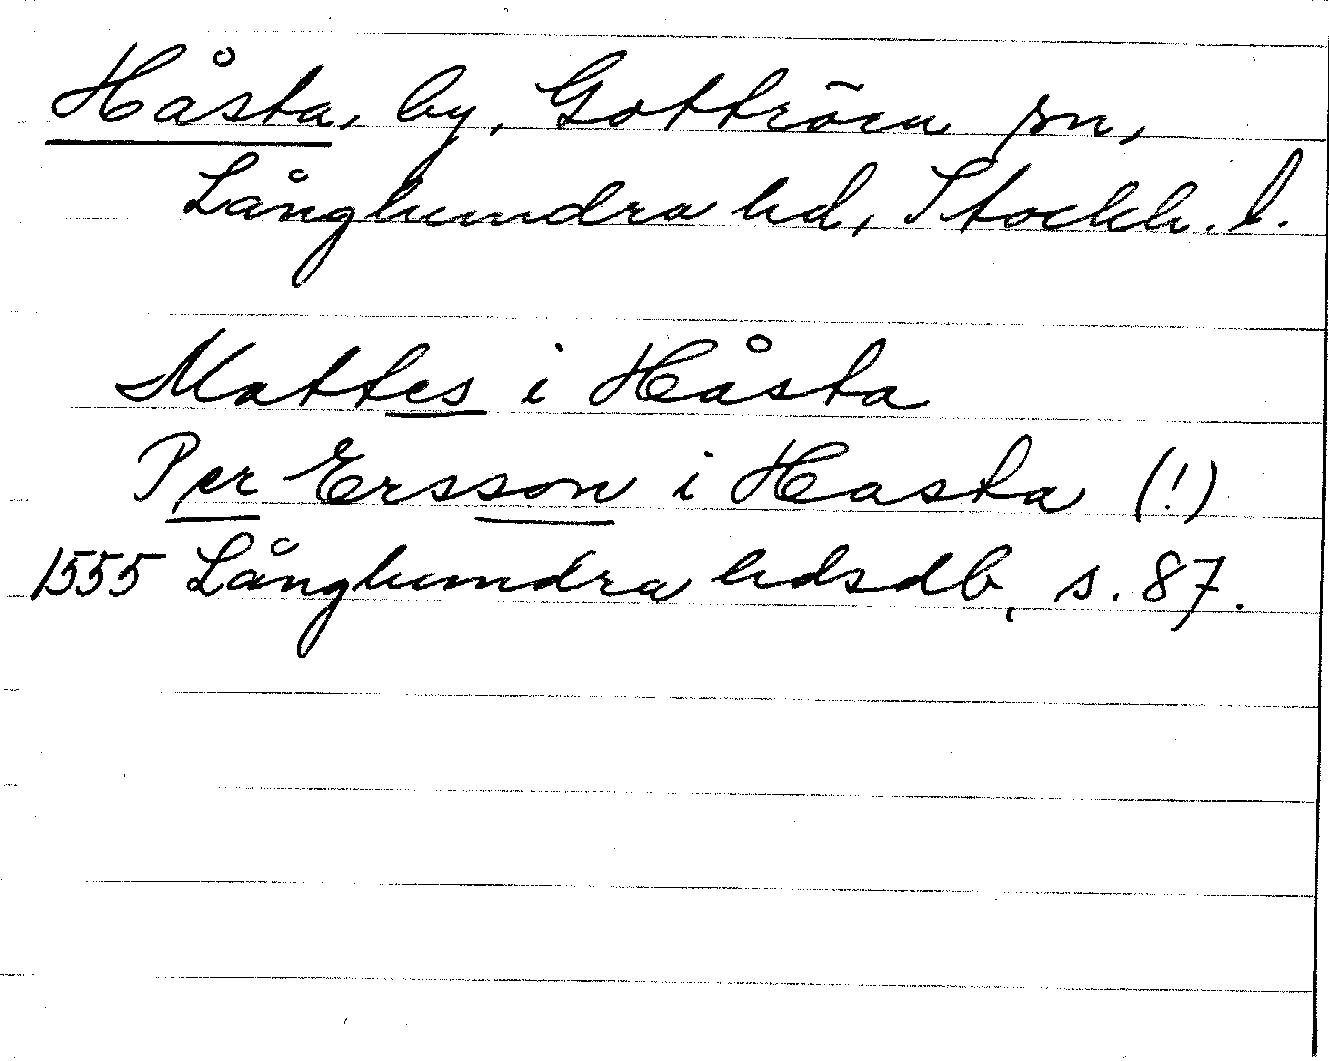 Håsta, by, Gottröra sn,
Långhundra hd, Stockh. l.
Mattes i Håsta
Per Ersson i Hasta (!)
1555 Långhundra hdsdb, s. 87.